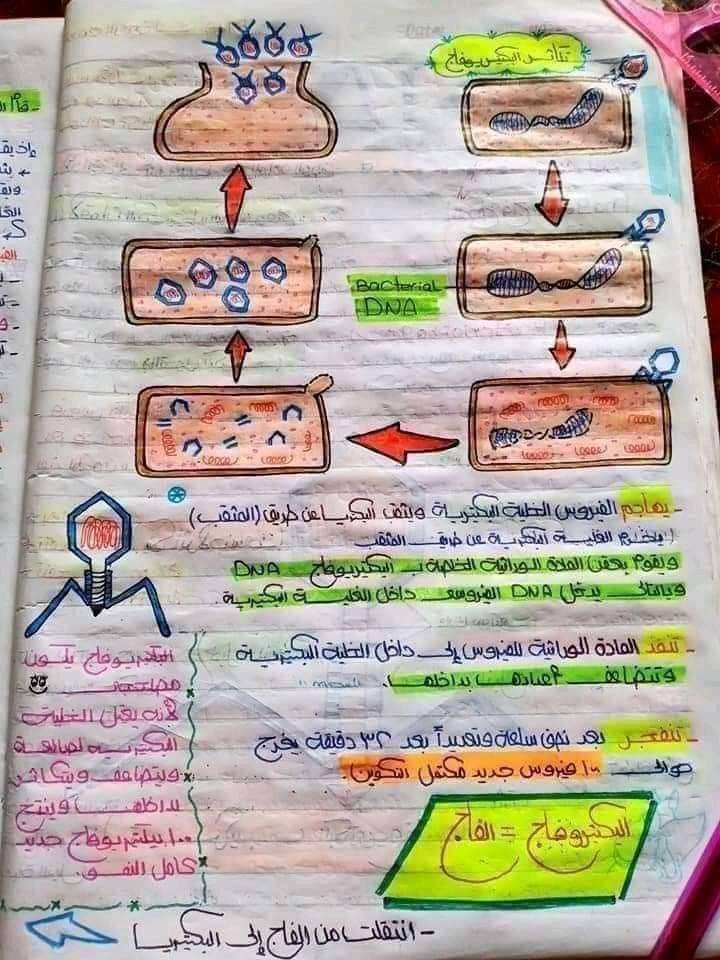 تكاثر البكتيريوفاج
Bacterial
DNA
- يهاجم الفيروس الخلية البكتيرية ويثقب البكتيريا عن طريق (المثقب)
ويقوم بحقن المادة الوراثية الخاصة بـ البكتيريوفاج DNA
وبالتالي يدخل DNA الفيروس داخل الخلية البكتيرية.
- تنفذ المادة الوراثية للفيروس إلى داخل الخلية البكتيرية
وتتضاعف أعدادها بداخلها.
- تنفجر بعد نصف ساعة وتحديداً بعد ٣٢ دقيقة يخرج
حوالي ١٠٠ فيروس جديد مكتمل التكوين.
البكتيريوفاج يكون
لأنه يقتل الخلية
البكتيرية لصالحة
ويتضاعف ويتكاثر
بداخلها وينتج
١٠٠ بيكتيريوفاج جديد
كامل النمو.
البكتيروفاج = الفاج
- انتقلت من الفاج إلى البكتيريا